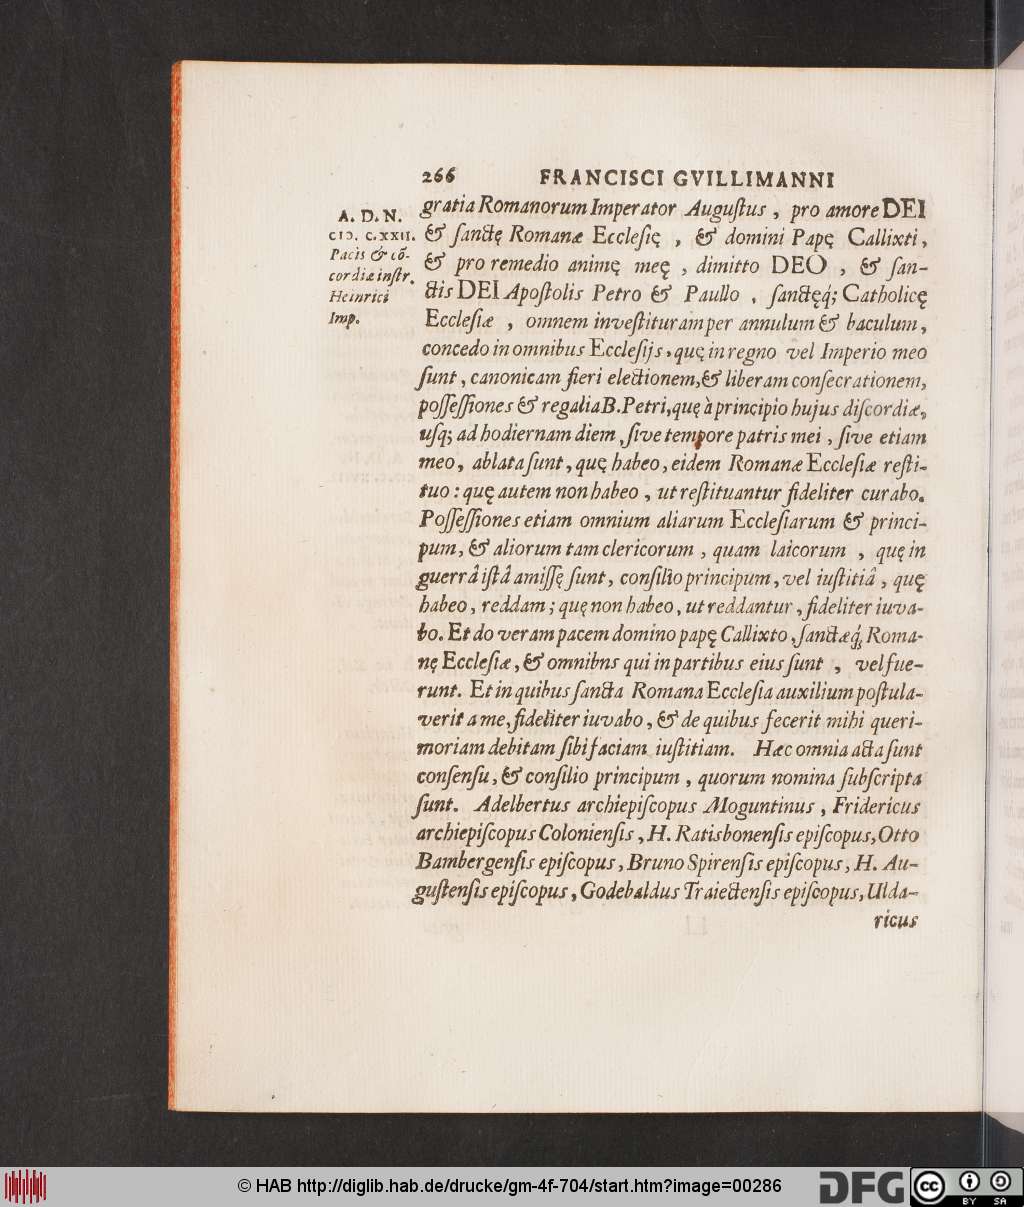 266 FRANCISCI GVILLIMANNI
A. D. N.
CIↃ. C.XXII.
Pacis & cō-
cordiæ instr.
Heinrici
Imp.
gratia Romanorum Imperator Augustus, pro amore DEI
& sanctę Romanæ Ecclesię, & domini Papę Callixti,
& pro remedio animę meę, dimitto DEO, & san-
ctis DEI Apostolis Petro & Paullo, sanctęq́; Catholicę
Ecclesiæ, omnem investituram per annulum & baculum,
concedo in omnibus Ecclesijs, quę in regno vel Imperio meo
sunt, canonicam fieri electionem, & liberam consecrationem,
possessiones & regalia B. Petri, quę à principio hujus discordiæ,
usq; ad hodiernam diem, sive tempore patris mei, sive etiam
meo, ablata sunt, quę habeo, eidem Romanæ Ecclesiæ resti-
tuo: quę autem non habeo, ut restituantur fideliter curabo.
Possessiones etiam omnium aliarum Ecclesiarum & princi-
pum, & aliorum tam clericorum, quam laicorum, quę in
guerrâ istâ amissę sunt, consilio principum, vel iustitiâ, quę
habeo, reddam; quę non habeo, ut reddantur, fideliter iuva-
bo. Et do veram pacem domino papę Callixto, sanctæq́; Roma-
nę Ecclesiæ, & omnibns qui in partibus eius sunt, vel fue-
runt. Et in quibus sancta Romana Ecclesia auxilium postula-
verit a me, fideliter iuvabo, & de quibus fecerit mihi queri-
moriam debitam sibi faciam iustitiam. Hæc omnia acta sunt
consensu, & consilio principum, quorum nomina subscripta
sunt. Adelbertus archiepiscopus Moguntinus, Fridericus
archiepiscopus Coloniensis, H. Ratisbonensis episcopus, Otto
Bambergensis episcopus, Bruno Spirensis episcopus, H. Au-
gustensis episcopus, Godebaldus Traiectensis episcopus, Ulda-
ricus
© HAB http://diglib.hab.de/drucke/gm-4f-704/start.htm?image=00286
DFG
cc
BY SA